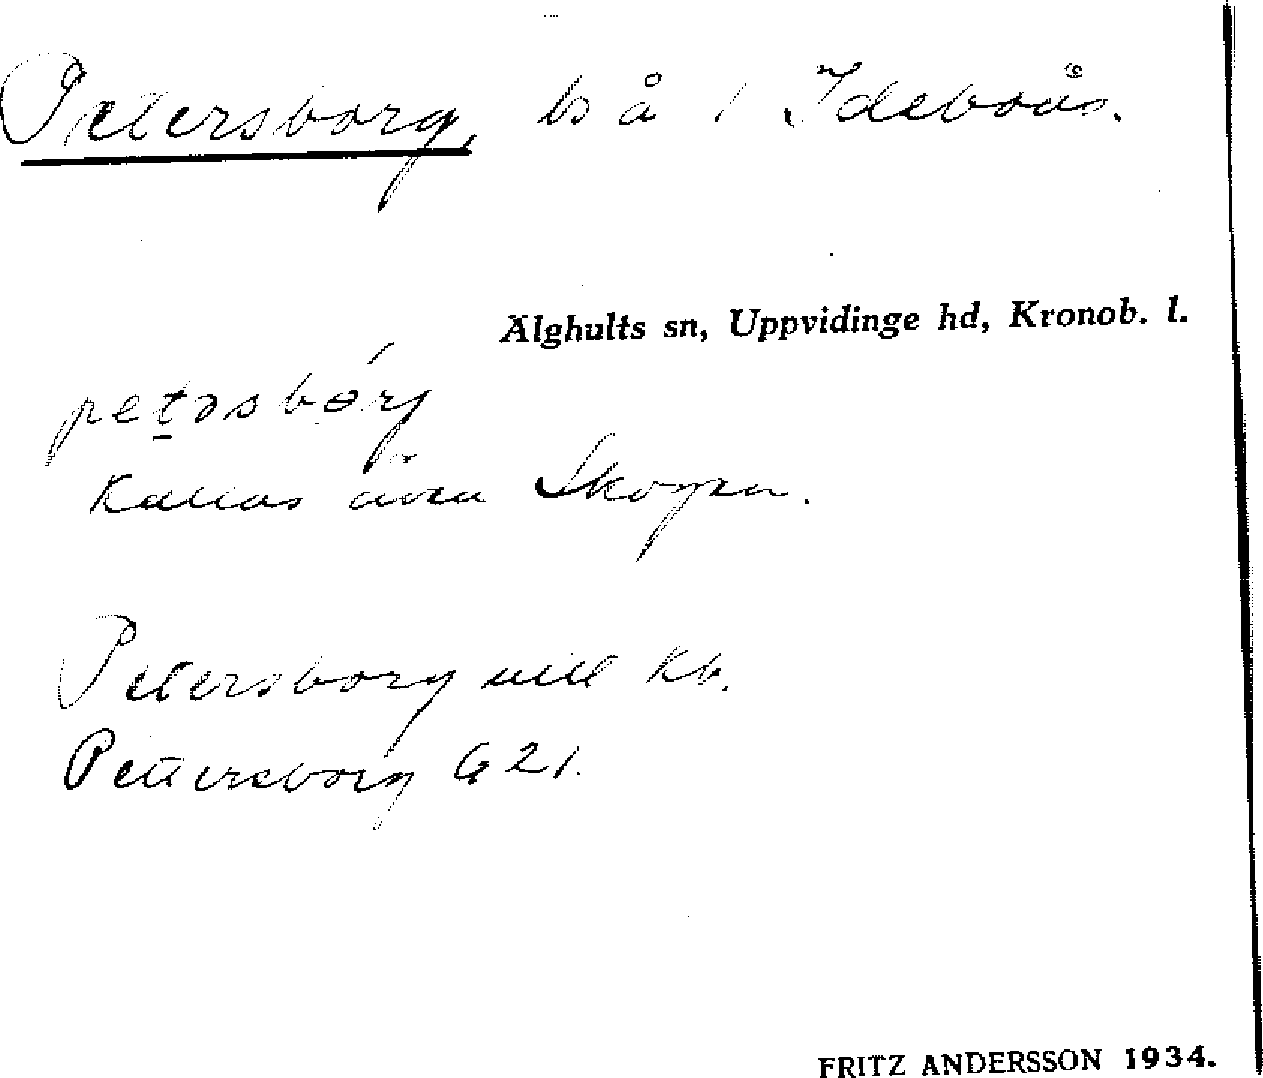 Petersborg, bs å 1 Ideboås.
Älghults sn, Uppvidinge hd, Kronob. l.
petəsbórj
Kallas även Skogen.
Petersborg vill Kb.
Pettersborg G 21.
FRITZ ANDERSSON 1934.